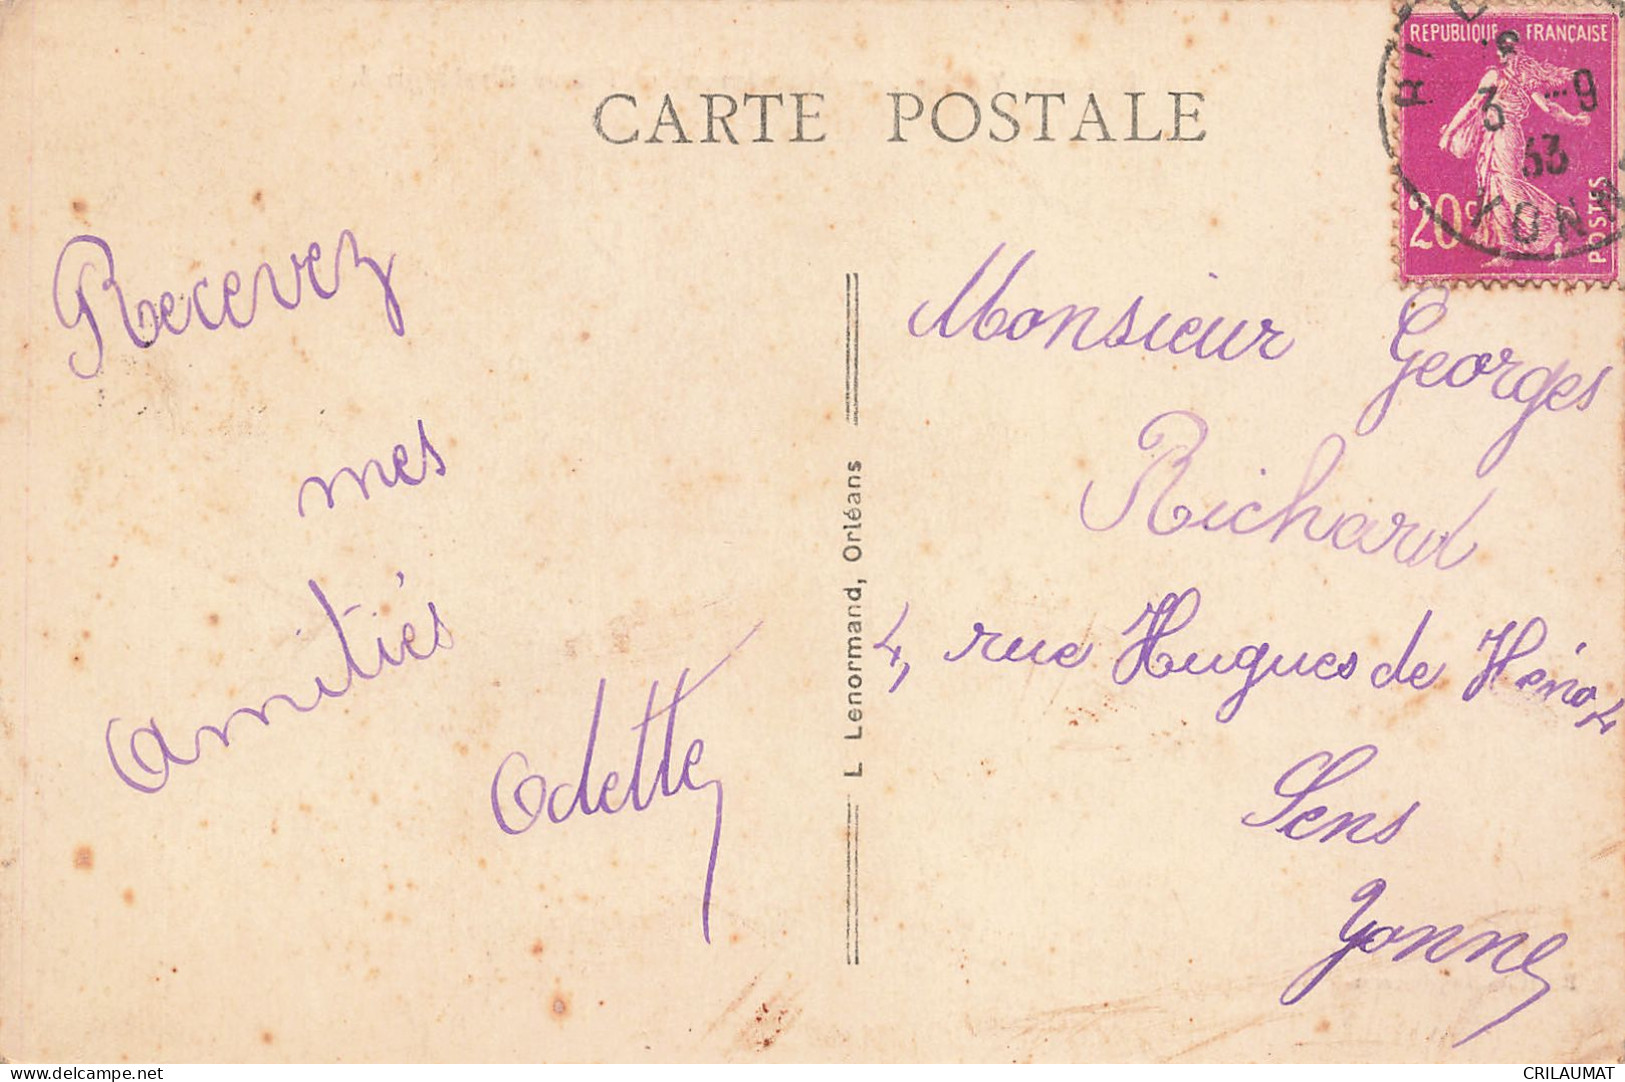 CARTE POSTALE
REPUBLIQUE FRANÇAISE
3 9
33
20c
POSTES
YONNE
Recevez
mes
amitiés
Odette
L Lenormand, Orléans
Monsieur Georges
Richard
4, rue Hugues de
Sens
Yonne
delcampe.net
CRILAUMAT